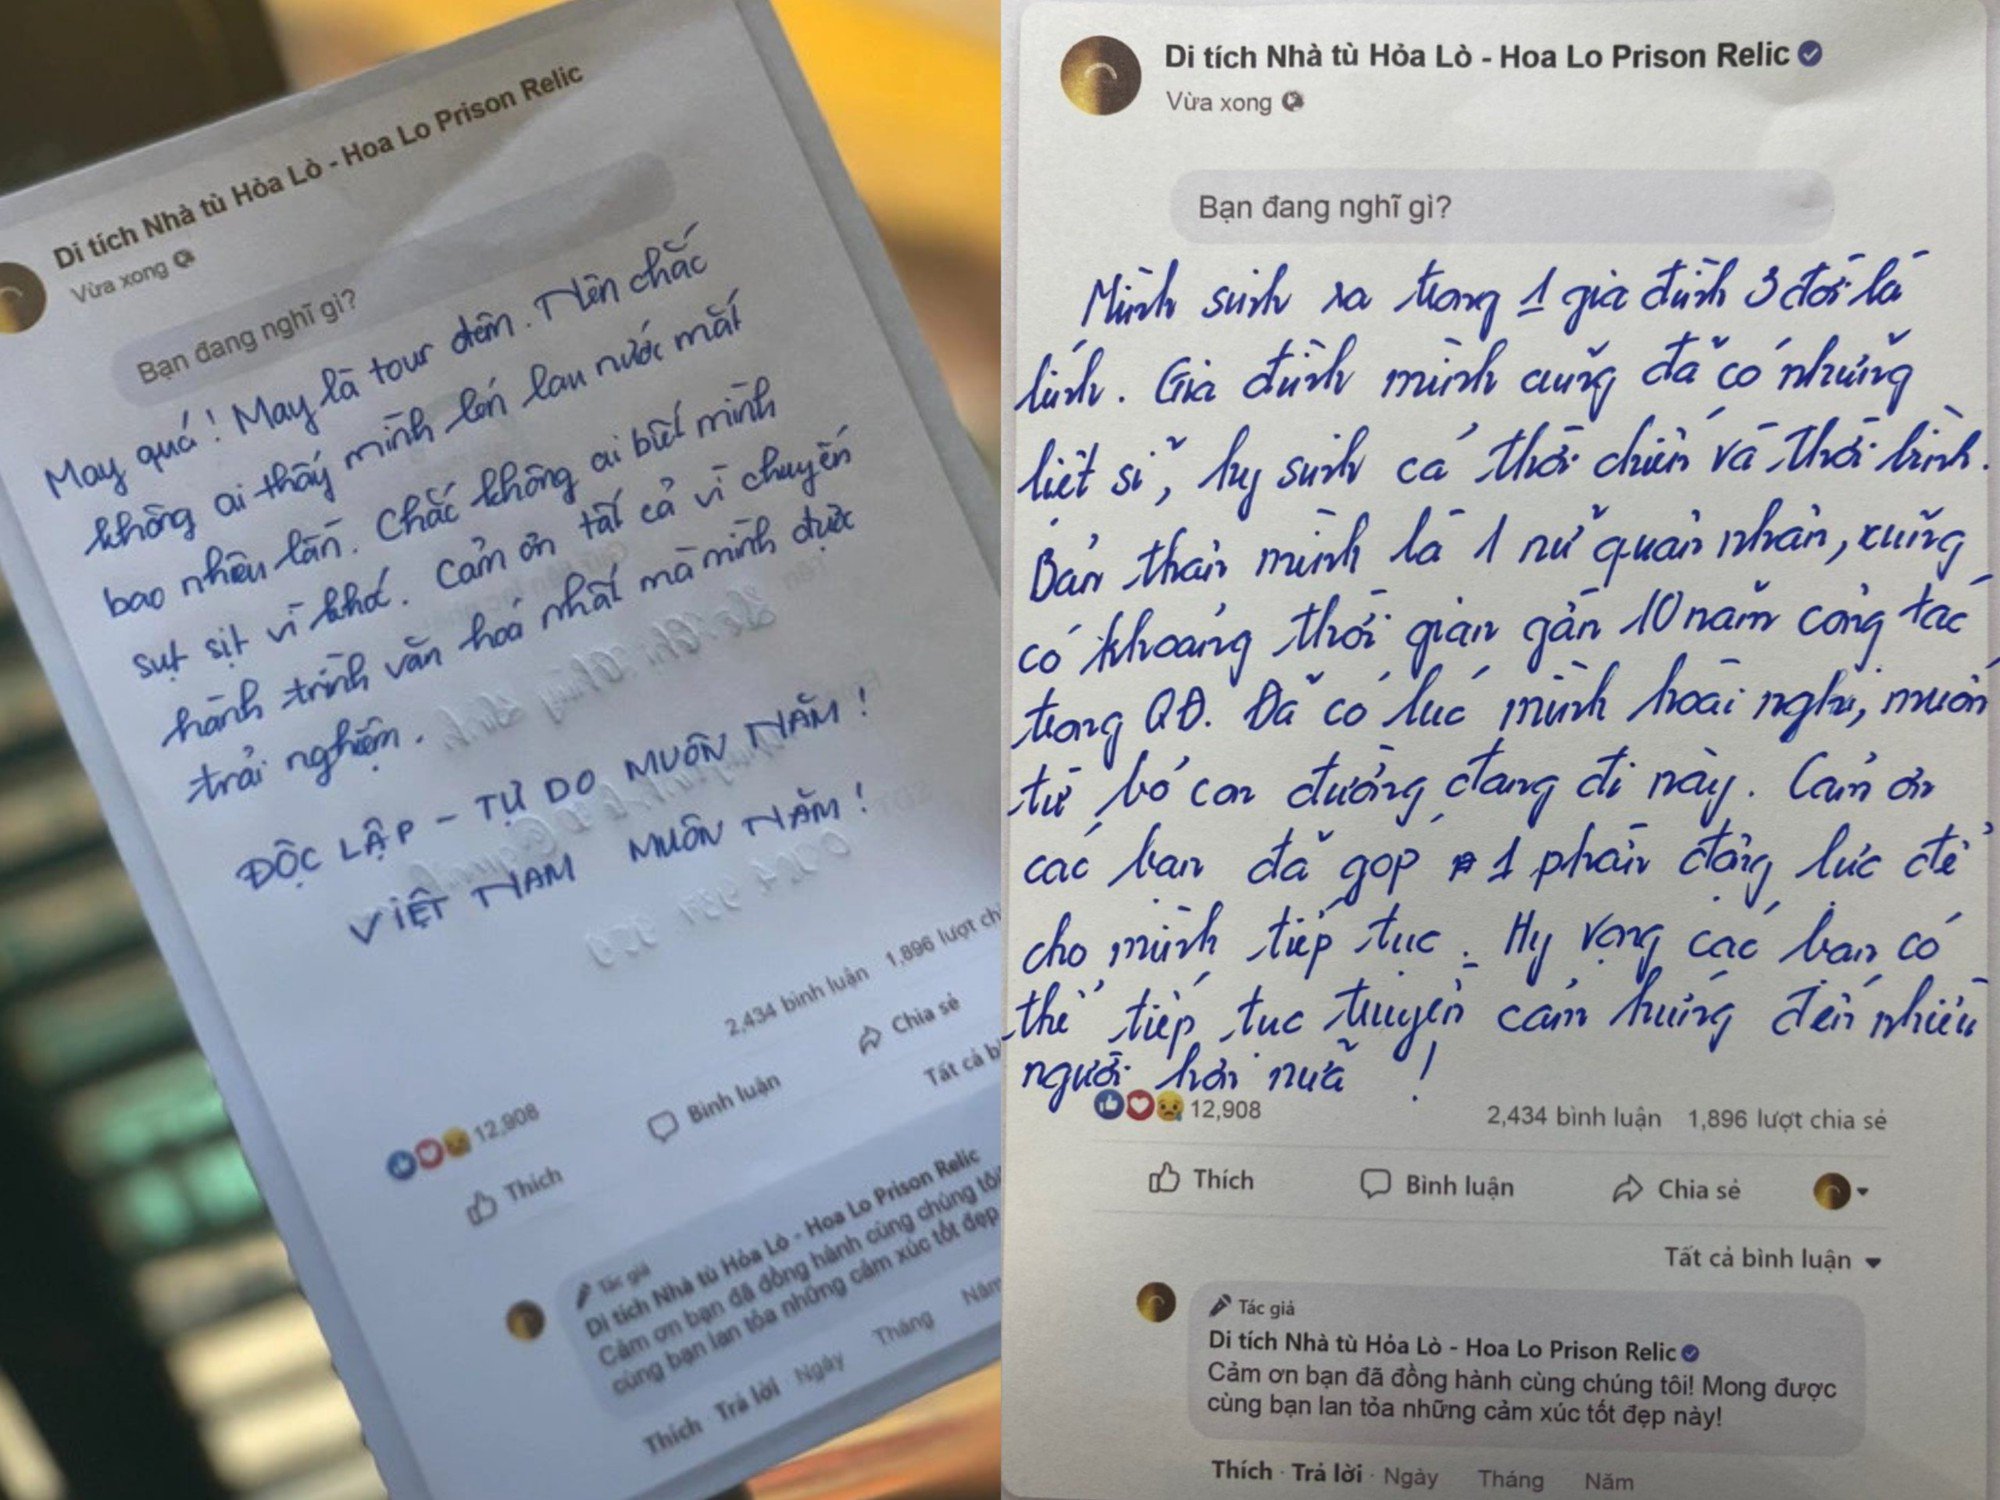 Di tích Nhà tù Hỏa Lò - Hoa Lo Prison Relic
Vừa xong
Bạn đang nghĩ gì?
May quá! May là tour đêm. Nên chắc
không ai thấy mình lén lau nước mắt
bao nhiêu lần. Chắc không ai biết mình
sụt sịt vì khó. Cảm ơn tất cả vì chuyến
hành trình văn hoá nhất mà mình được
trải nghiệm.
ĐỘC LẬP - TỰ DO MUÔN NĂM!
VIỆT NAM MUÔN NĂM!
2,434 bình luận 1,896 lượt ch
12,908
Thích Bình luận Chia sẻ
Tất cả b
Tác giả
Di tích Nhà tù Hỏa Lò - Hoa Lo Prison Relic
Cảm ơn bạn đã đồng hành cùng chúng tôi
cùng bạn lan tỏa những cảm xúc tốt đẹp
Thích · Trả lời · Ngày Tháng Năm
Di tích Nhà tù Hỏa Lò - Hoa Lo Prison Relic
Vừa xong
Bạn đang nghĩ gì?
Mình sinh ra trong 1 gia đình 3 đời là
lính. Gia đình mình cũng đã có những
liệt sĩ, hy sinh cả thời chiến và thời bình.
Bản thân mình là 1 nữ quân nhân, cũng
có khoảng thời gian gần 10 năm công tác
trong QĐ. Đã có lúc mình hoài nghi, muốn
từ bỏ con đường đang đi này. Cảm ơn
các bạn đã góp 1 phần động lực để
cho mình tiếp tục. Hy vọng các bạn có
thể tiếp tục truyền cảm hứng đến nhiều
người hơn nữa!
12,908 2,434 bình luận 1,896 lượt chia sẻ
Thích Bình luận Chia sẻ
Tất cả bình luận
Tác giả
Di tích Nhà tù Hỏa Lò - Hoa Lo Prison Relic
Cảm ơn bạn đã đồng hành cùng chúng tôi! Mong được
cùng bạn lan tỏa những cảm xúc tốt đẹp này!
Thích · Trả lời · Ngày Tháng Năm